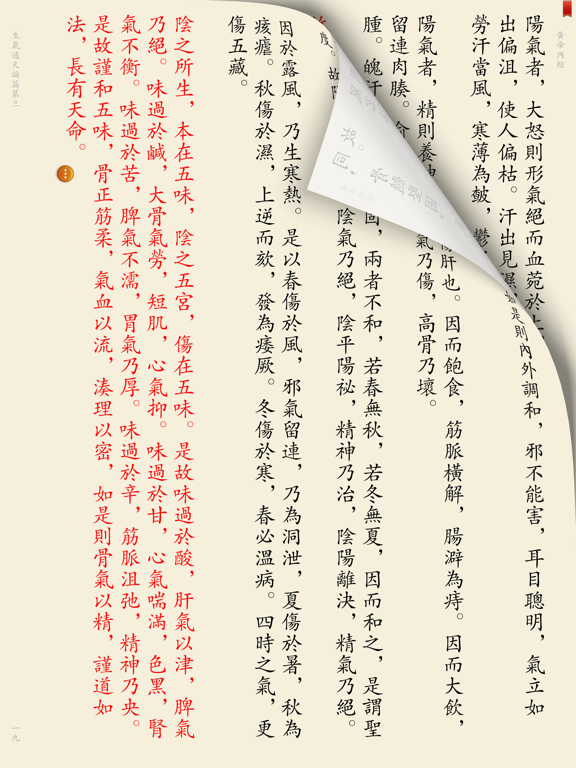 黃帝內經
陽氣者，大怒則形氣絕而血菀於
是則內外調和，邪不能害，耳目聰明，氣立如
出偏沮，使人偏枯。汗出見濕
勞汗當風，寒薄為皶，鬱
傷肝也。因而飽食，筋脈橫解，腸澼為痔。因而大飲，
陽氣者，精則養神
氣乃傷，高骨乃壞。
留連肉腠。俞
腫。魄汗
兩者不和，若春無秋，若冬無夏，因而和之，是謂聖
度。故
陰氣乃絕，陰平陽祕，精神乃治，陰陽離決，精氣乃絕。
因於露風，乃生寒熱。是以春傷於風，邪氣留連，乃為洞泄，夏傷於暑，秋為
痎瘧。秋傷於濕，上逆而欬，發為痿厥。冬傷於寒，春必溫病。四時之氣，更
傷五藏。
陰之所生，本在五味，陰之五宮，傷在五味。是故味過於酸，肝氣以津，脾氣
乃絕。味過於鹹，大骨氣勞，短肌，心氣抑。味過於甘，心氣喘滿，色黑，腎
氣不衡。味過於苦，脾氣不濡，胃氣乃厚。味過於辛，筋脈沮弛，精神乃央。
是故謹和五味，骨正筋柔，氣血以流，湊理以密，如是則骨氣以精，謹道如
法，長有天命。
生氣通天論篇第三
一九